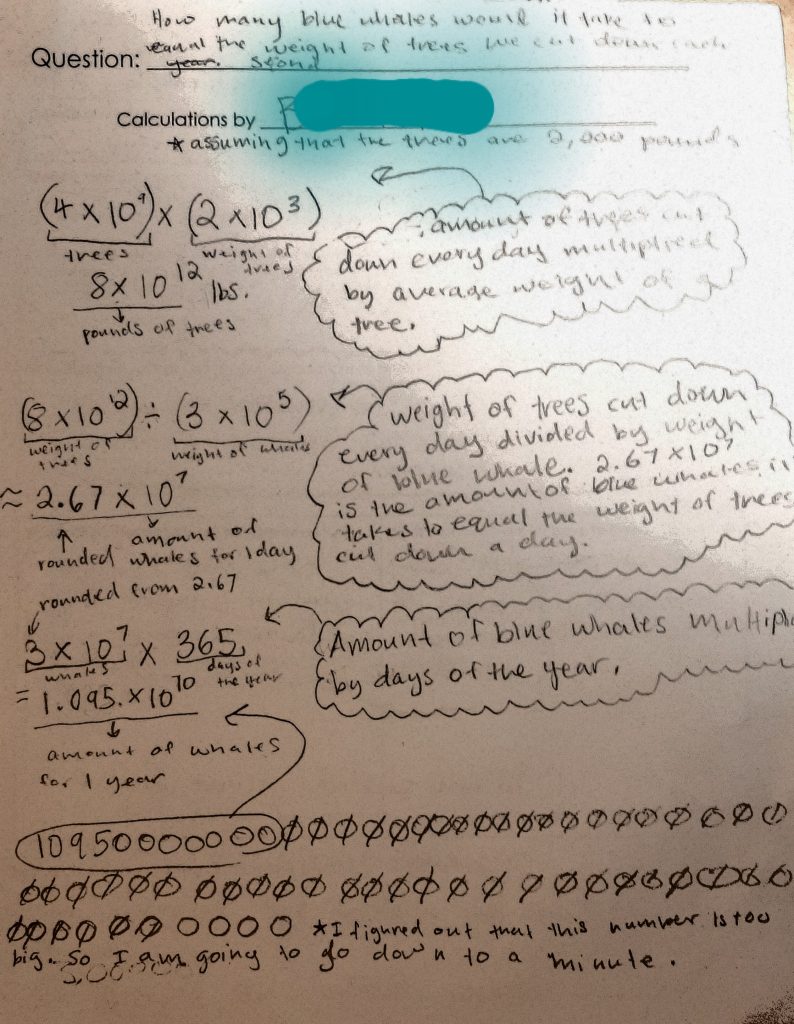 How many blue whales would it take to
equal the weight of trees we cut down each
Question: year. scond
Calculations by
* assuming that the trees are 2,000 pounds
(4 x 10⁹) x (2 x 10³)
trees weight of trees
8 x 10¹² lbs.
pounds of trees
amount of trees cut
down every day multiplied
by average weight of a
tree.
(8 x 10¹²) ÷ (3 x 10⁵)
weight of trees weight of whales
≈ 2.67 x 10⁷
rounded amount of whales for 1 day
weight of trees cut down
every day divided by weight
of blue whale. 2.67 x 10⁷
is the amount of blue whales it
takes to equal the weight of trees
cut down a day.
rounded from 2.67
3 x 10⁷ x 365
whales days of the year
= 1.095. x 10¹⁰
amount of whales
for 1 year
Amount of blue whales multipl
by days of the year.
10950000000
0000 * I figured out that this number is too
big. So I am going to go down to a minute.